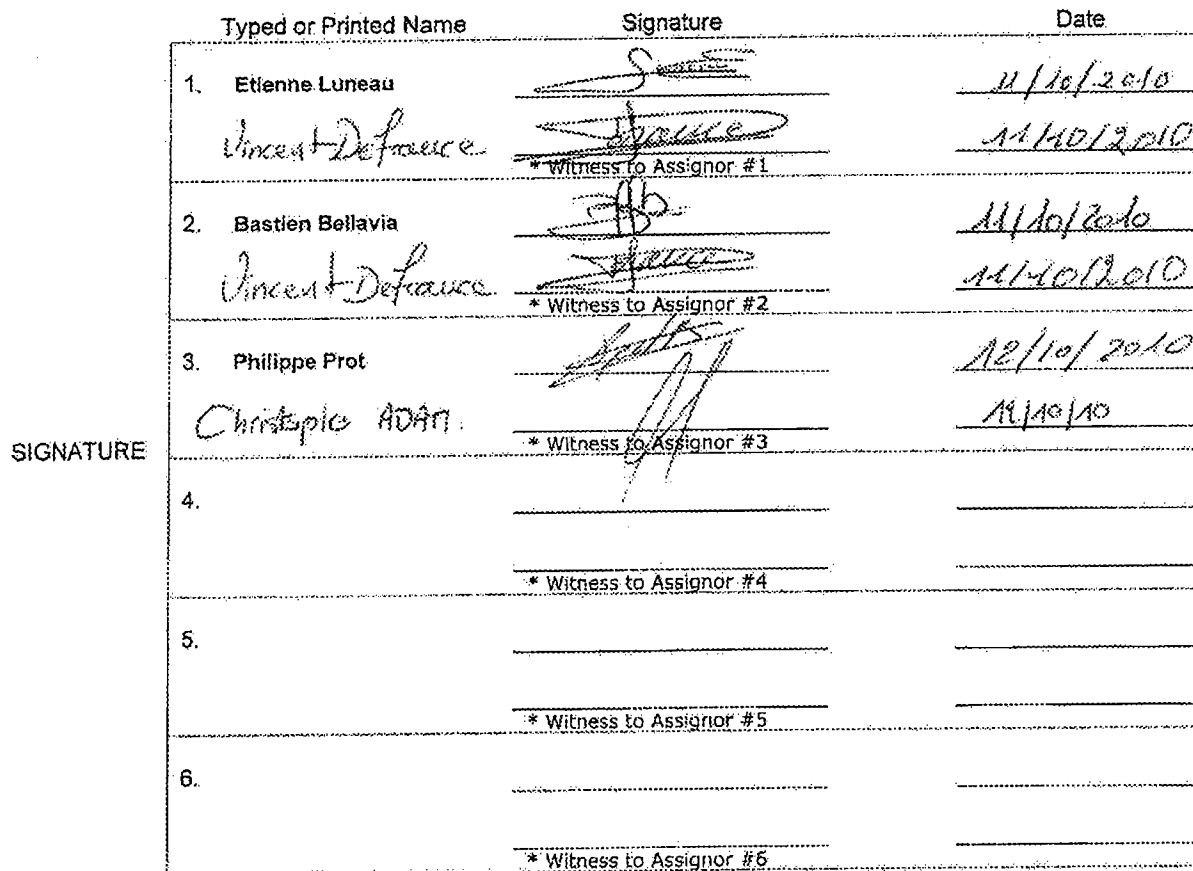 Typed or Printed Name Signature Date
1. Etienne Luneau 11/10/2010
Vincent Defrance 11/10/2010
* Witness to Assignor #1
2. Bastien Bellavia 11/10/2010
Vincent Defrance 11/10/2010
* Witness to Assignor #2
3. Philippe Prot 12/10/2010
Christople ADAM. /10/10
* Witness to Assignor #3
SIGNATURE
4.
* Witness to Assignor #4
5.
* Witness to Assignor #5
6.
* Witness to Assignor #6